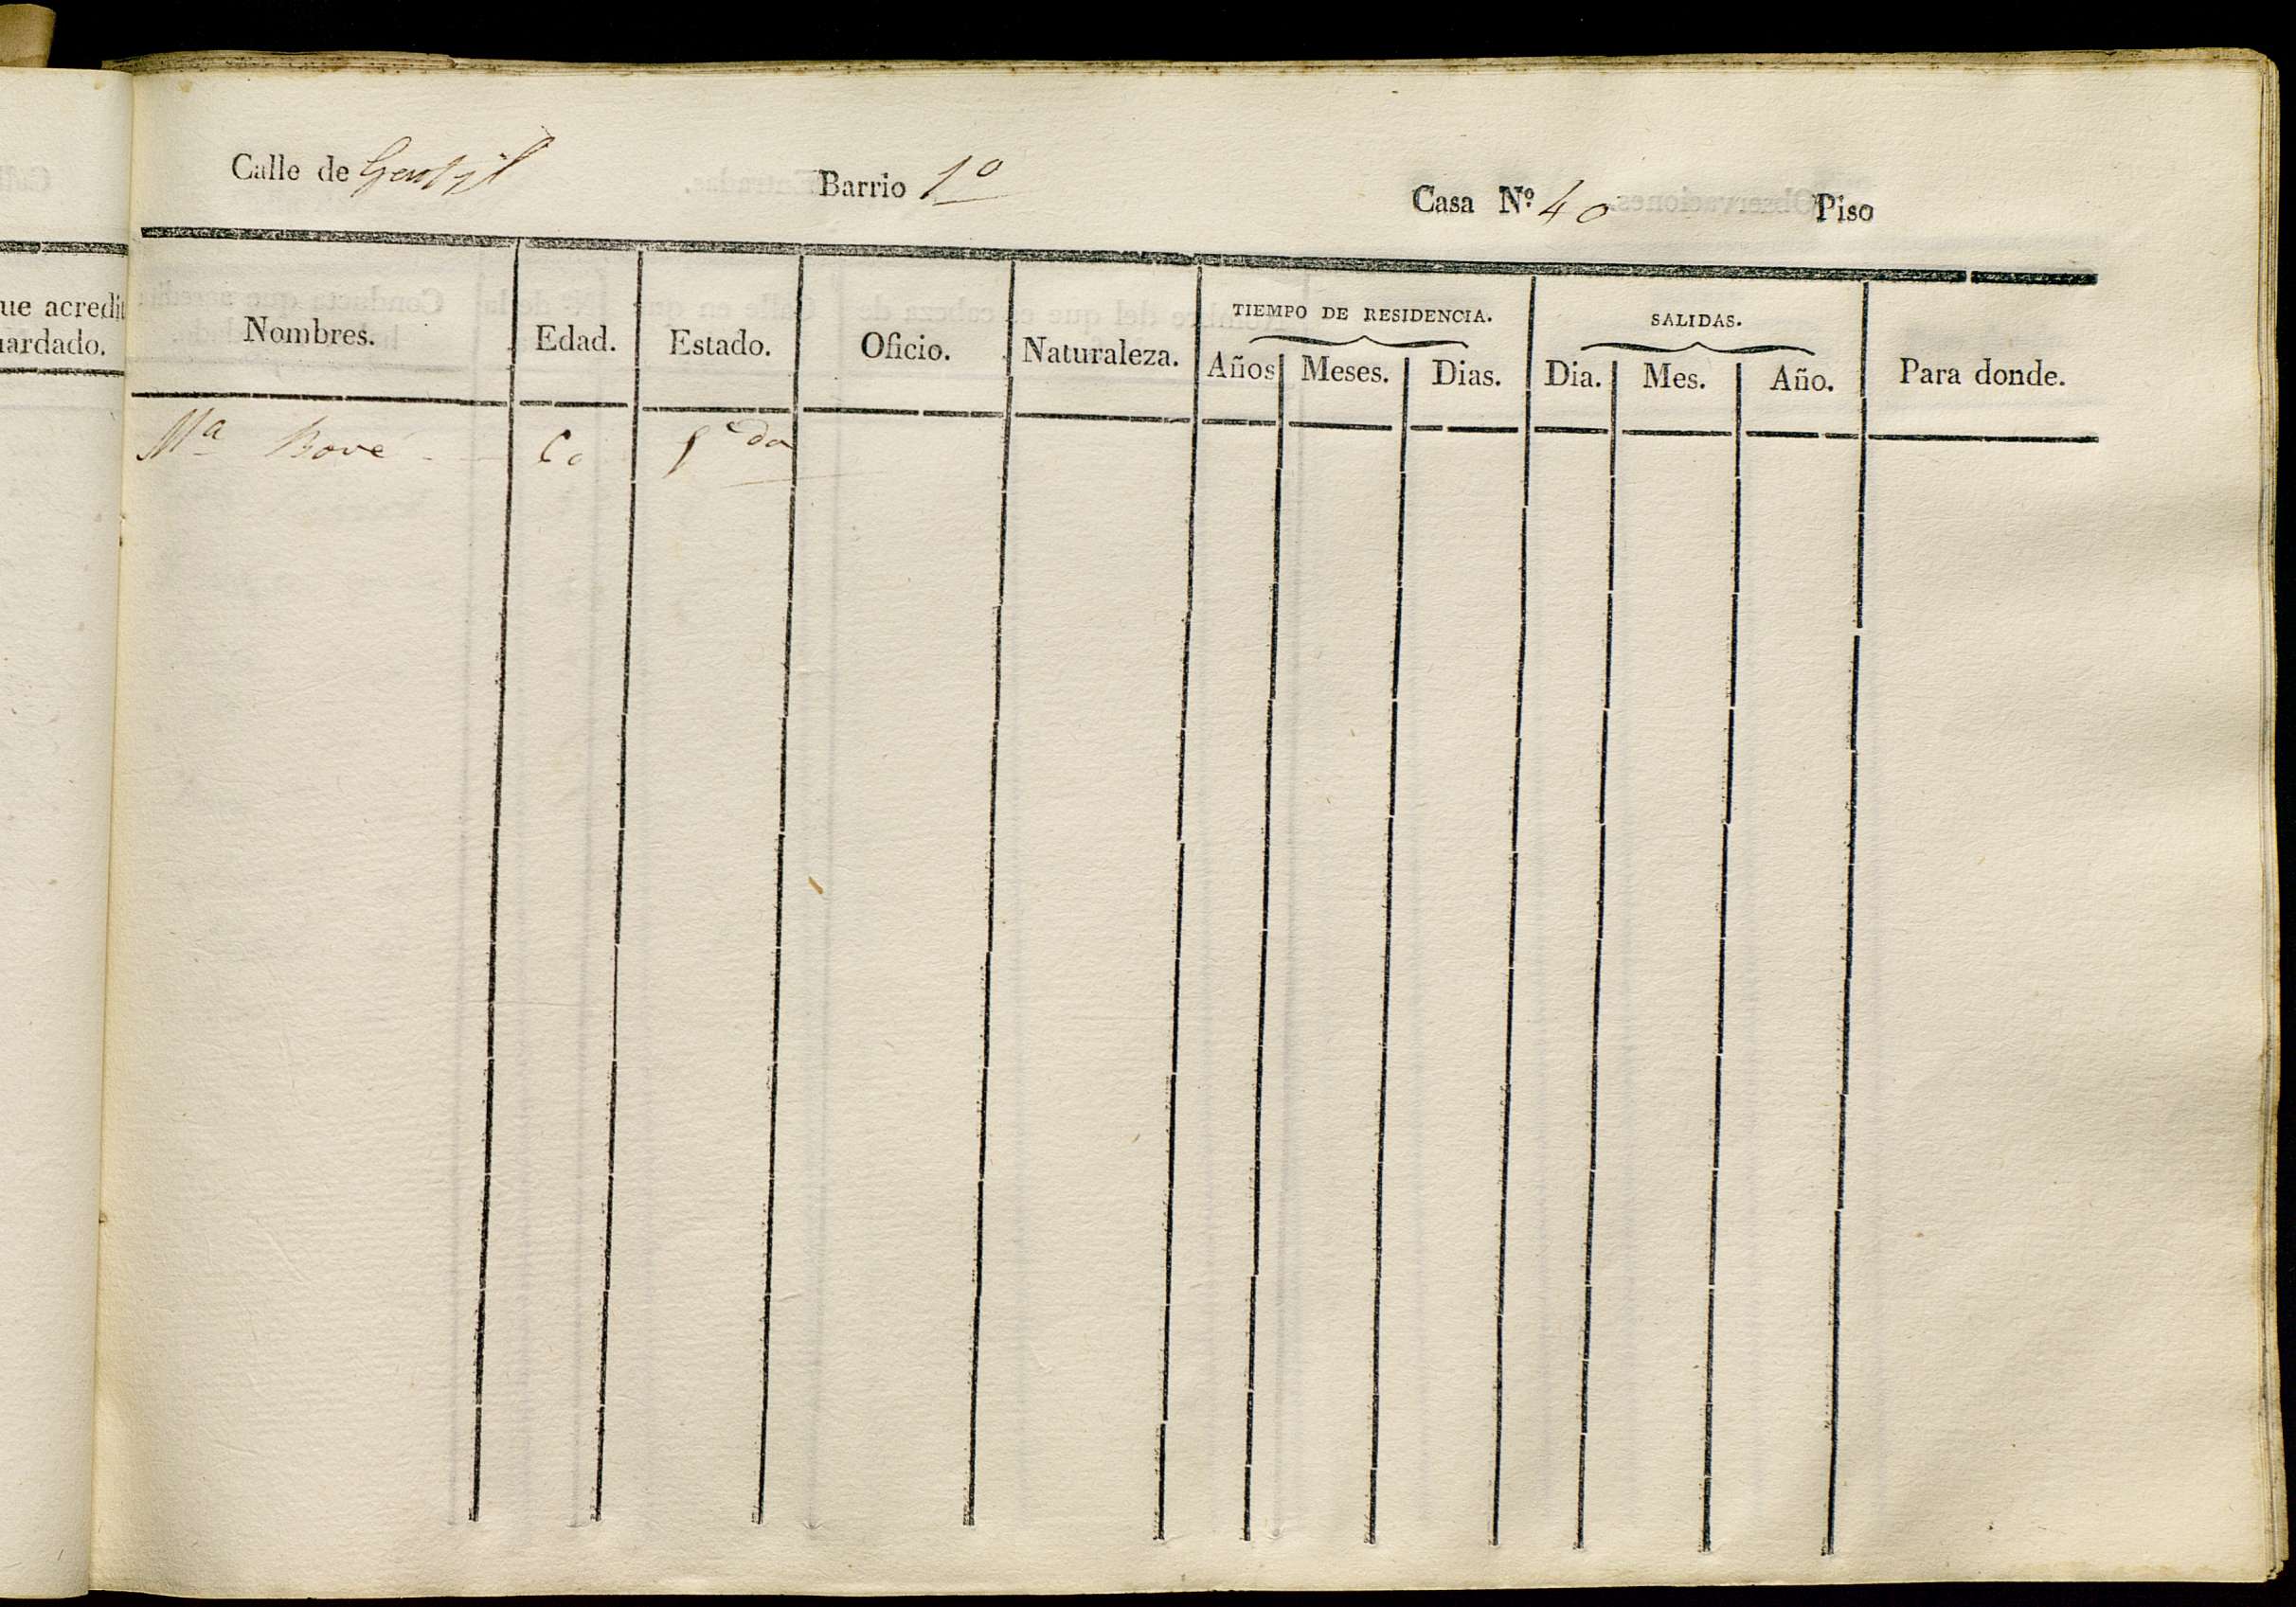 Calle de Barrio 1º Casa Nº 40 Piso
ue acredit
ardado.
Nombres. Edad. Estado. Oficio. Naturaleza. TIEMPO DE RESIDENCIA. SALIDAS. Para donde.
Años Meses. Dias. Dia. Mes. Año.
Mª Bové